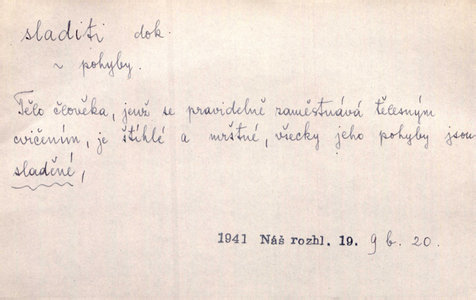 sladiti dok.
~ pohyby.
Tělo člověka, jenž se pravidelně zaměstnává tělesným
cvičením, je štíhlé a mrštné, všecky jeho pohyby jsou
sladěné,
1941 Náš rozhl. 19. 9 b. 20.